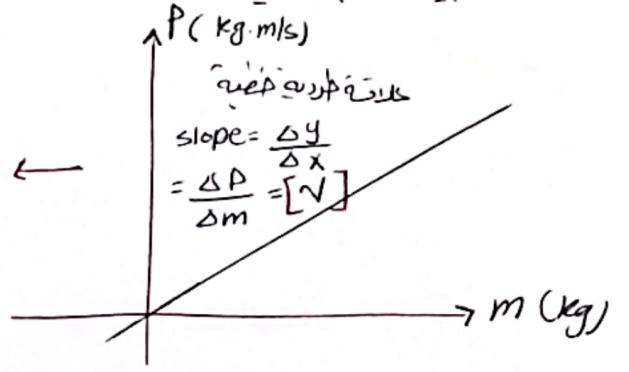 P( kg.m/s)
علاقة طردية خطية
slope= Δy/Δx
= ΔP/Δm =[V]
m (kg)